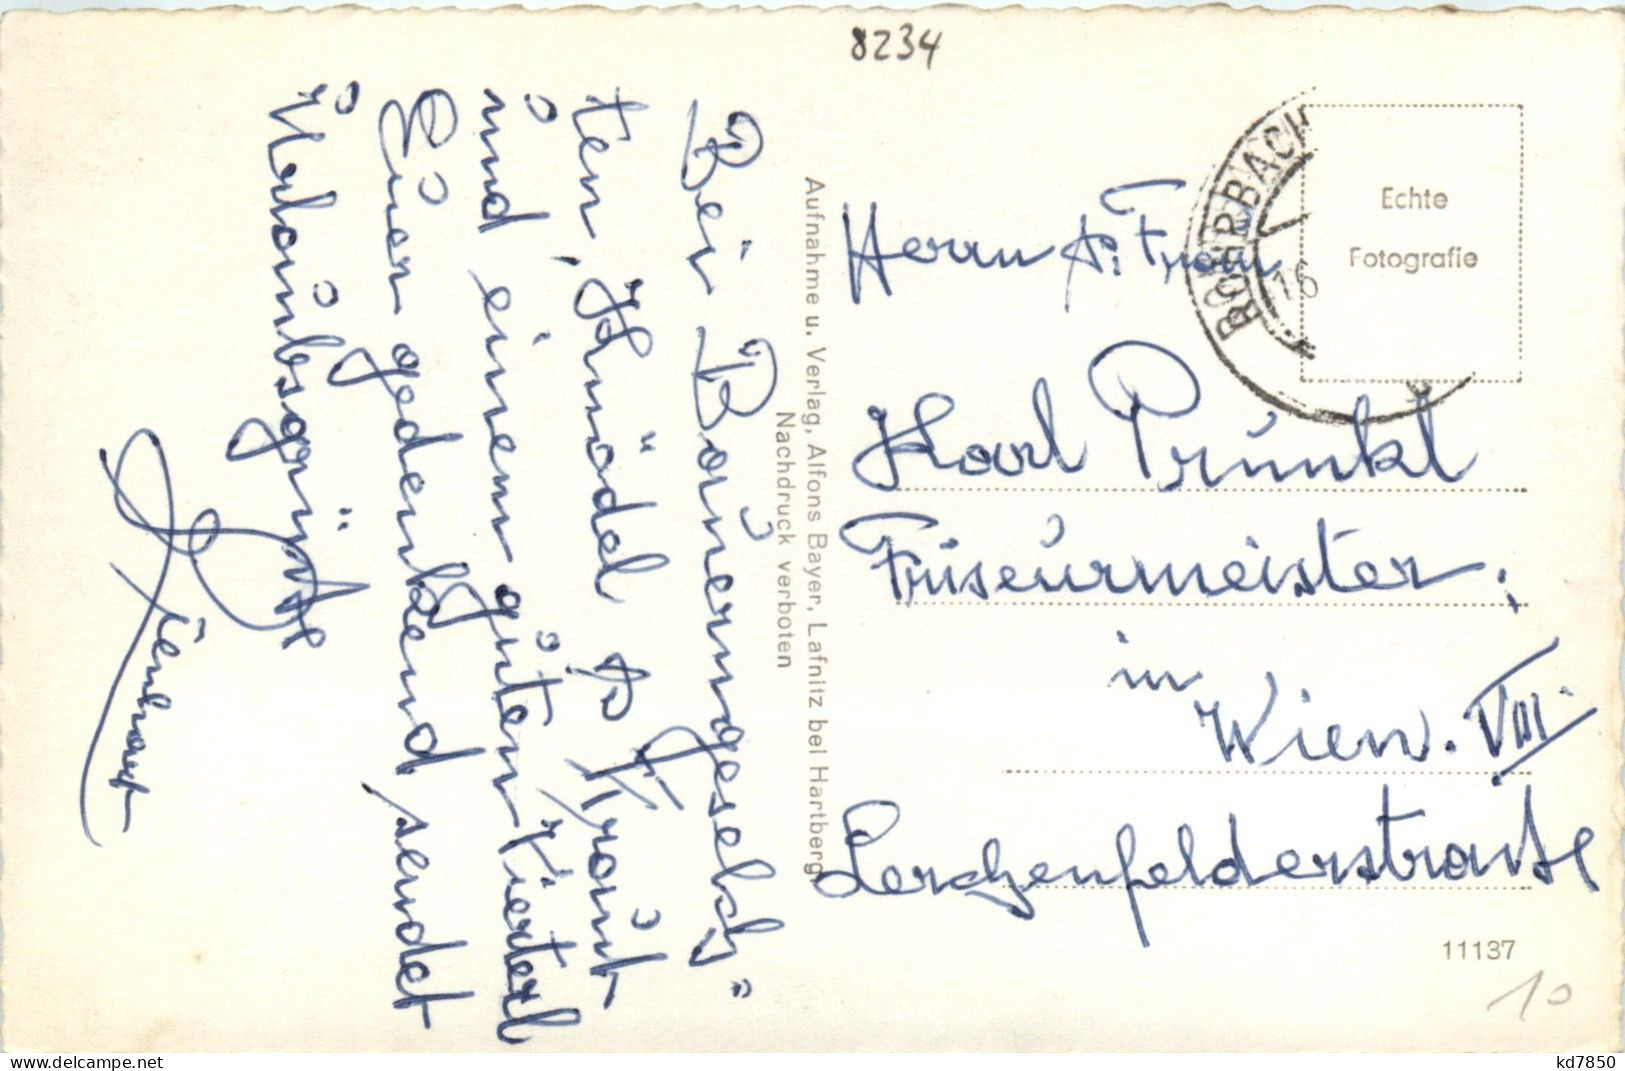 8234
Bei Bauerngeselch"
ten, Knödel & Kraut
und einem guten Vierterl
Euer gedenkend, sendet
Urlaubsgrüße
Lienhart
Aufnahme u. Verlag, Alfons Bayer, Lafnitz bei Hartberg
Nachdruck verboten
ROHRBACH
16
Echte
Fotografie
Herrn & Frau
Karl Prunkl
Friseurmeister.
in
Wien. VIII.
Lerchenfelderstraße
11137
10
www.delcampe.net
kd7850